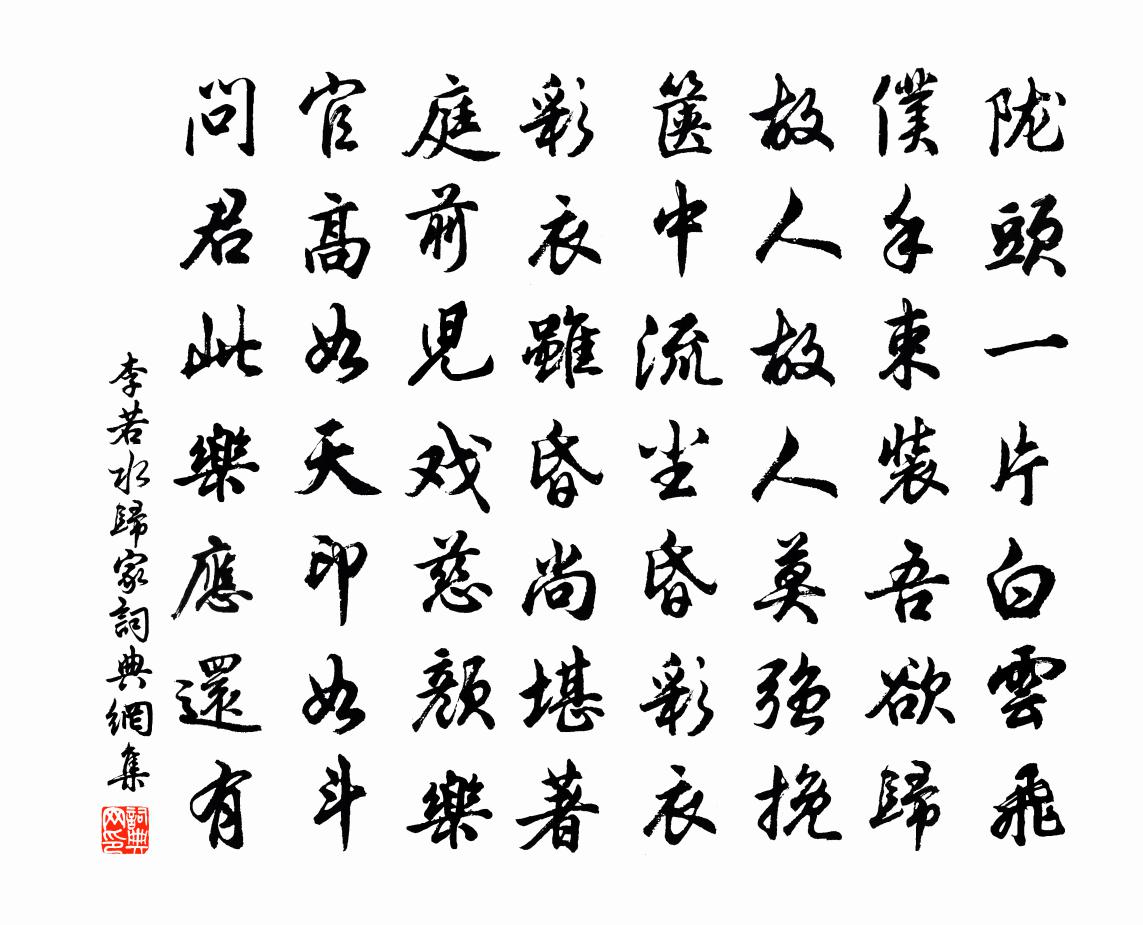 陇頭一片白雲飛
僕手束装吾欲歸
故人故人莫強挽
篋中流塵昏彩衣
彩衣雖昏尚堪著
庭前児戏慈顔樂
官高如天印如斗
問君此樂應還有
李若水歸家詞典網集
詞典网印